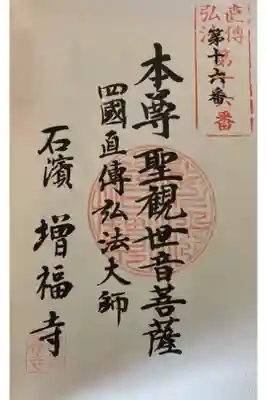 直傳
弘法
第十六番
本尊聖観世音菩薩
四國直傳弘法大師
石濱 増福寺